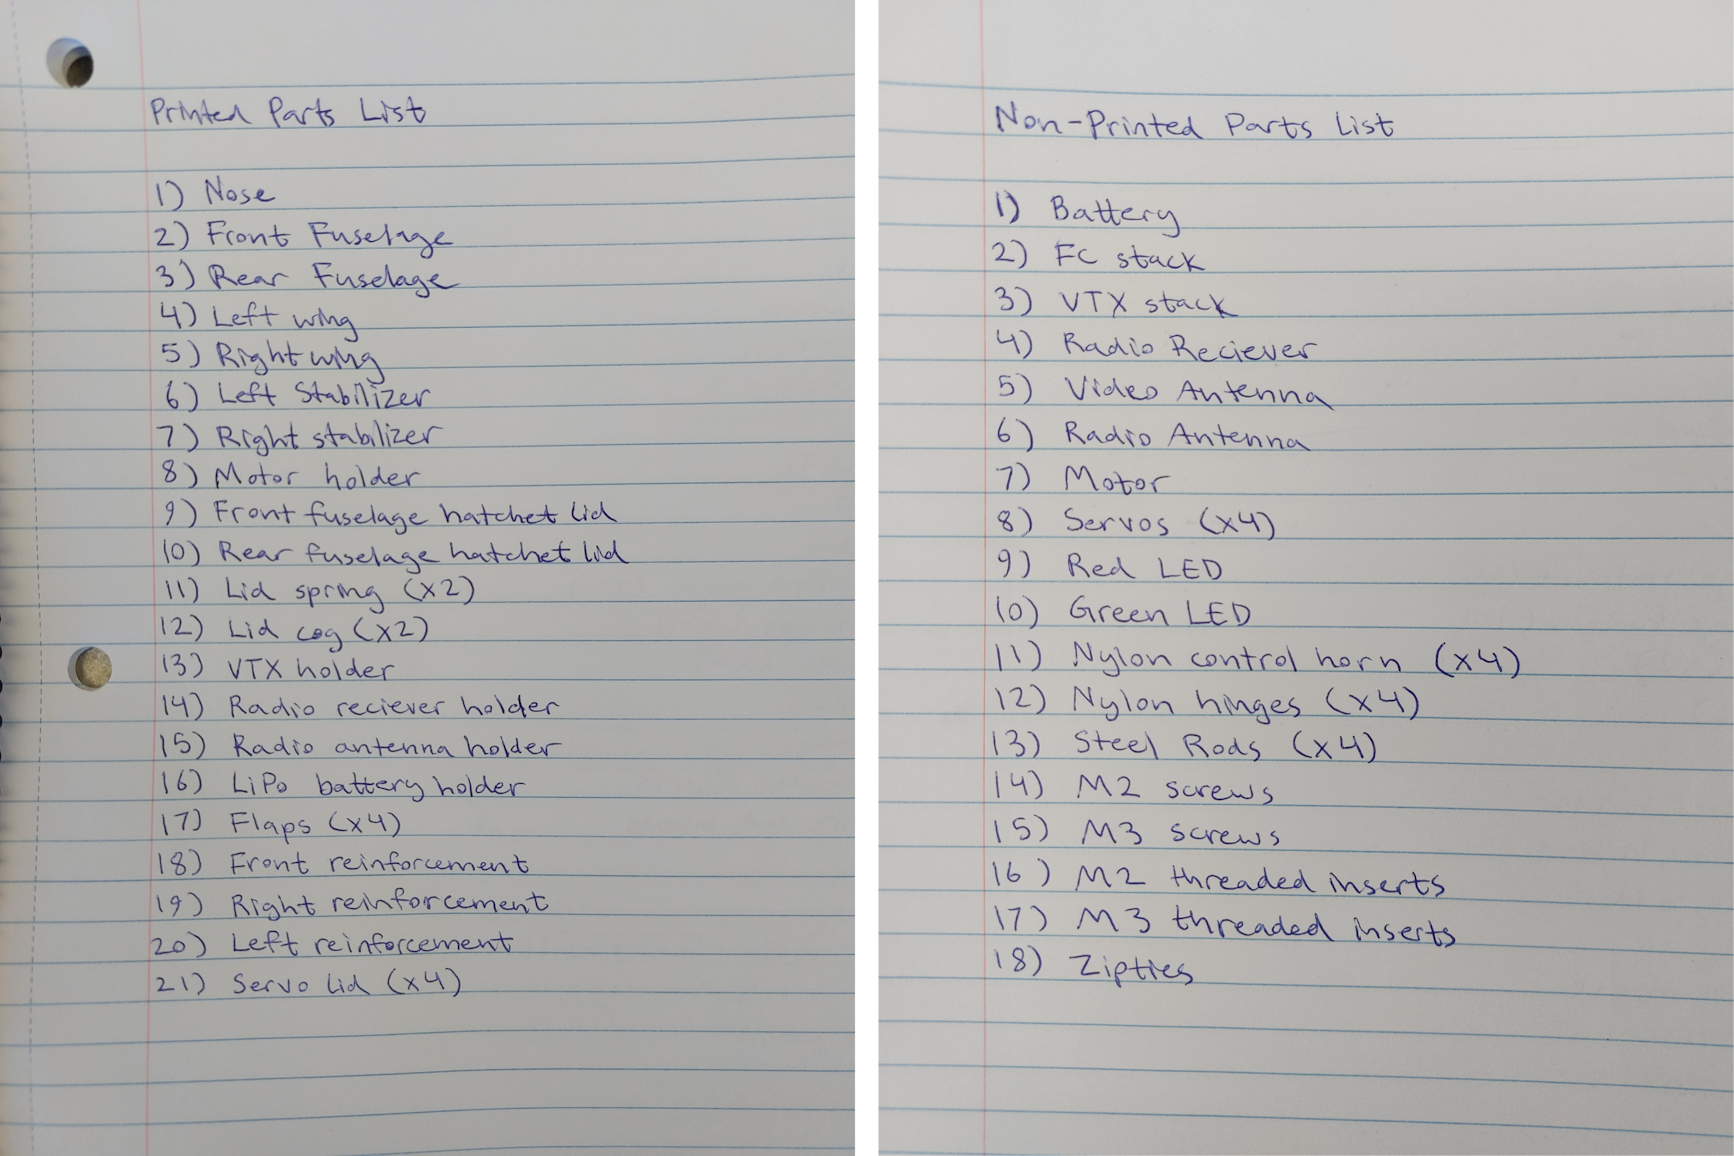 Printed Parts List
1) Nose
2) Front Fuselage
3) Rear Fuselage
4) Left wing
5) Right wing
6) Left Stabilizer
7) Right stabilizer
8) Motor holder
9) Front fuselage hatchet lid
10) Rear fuselage hatchet lid
11) Lid spring (x2)
12) Lid cog (x2)
13) VTX holder
14) Radio reciever holder
15) Radio antenna holder
16) LiPo battery holder
17) Flaps (x4)
18) Front reinforcement
19) Right reinforcement
20) Left reinforcement
21) Servo lid (x4)
Non-Printed Parts List
1) Battery
2) FC stack
3) VTX stack
4) Radio Reciever
5) Video Antenna
6) Radio Antenna
7) Motor
8) Servos (x4)
9) Red LED
10) Green LED
11) Nylon control horn (x4)
12) Nylon hinges (x4)
13) Steel Rods (x4)
14) M2 screws
15) M3 screws
16) M2 threaded inserts
17) M3 threaded inserts
18) Zipties